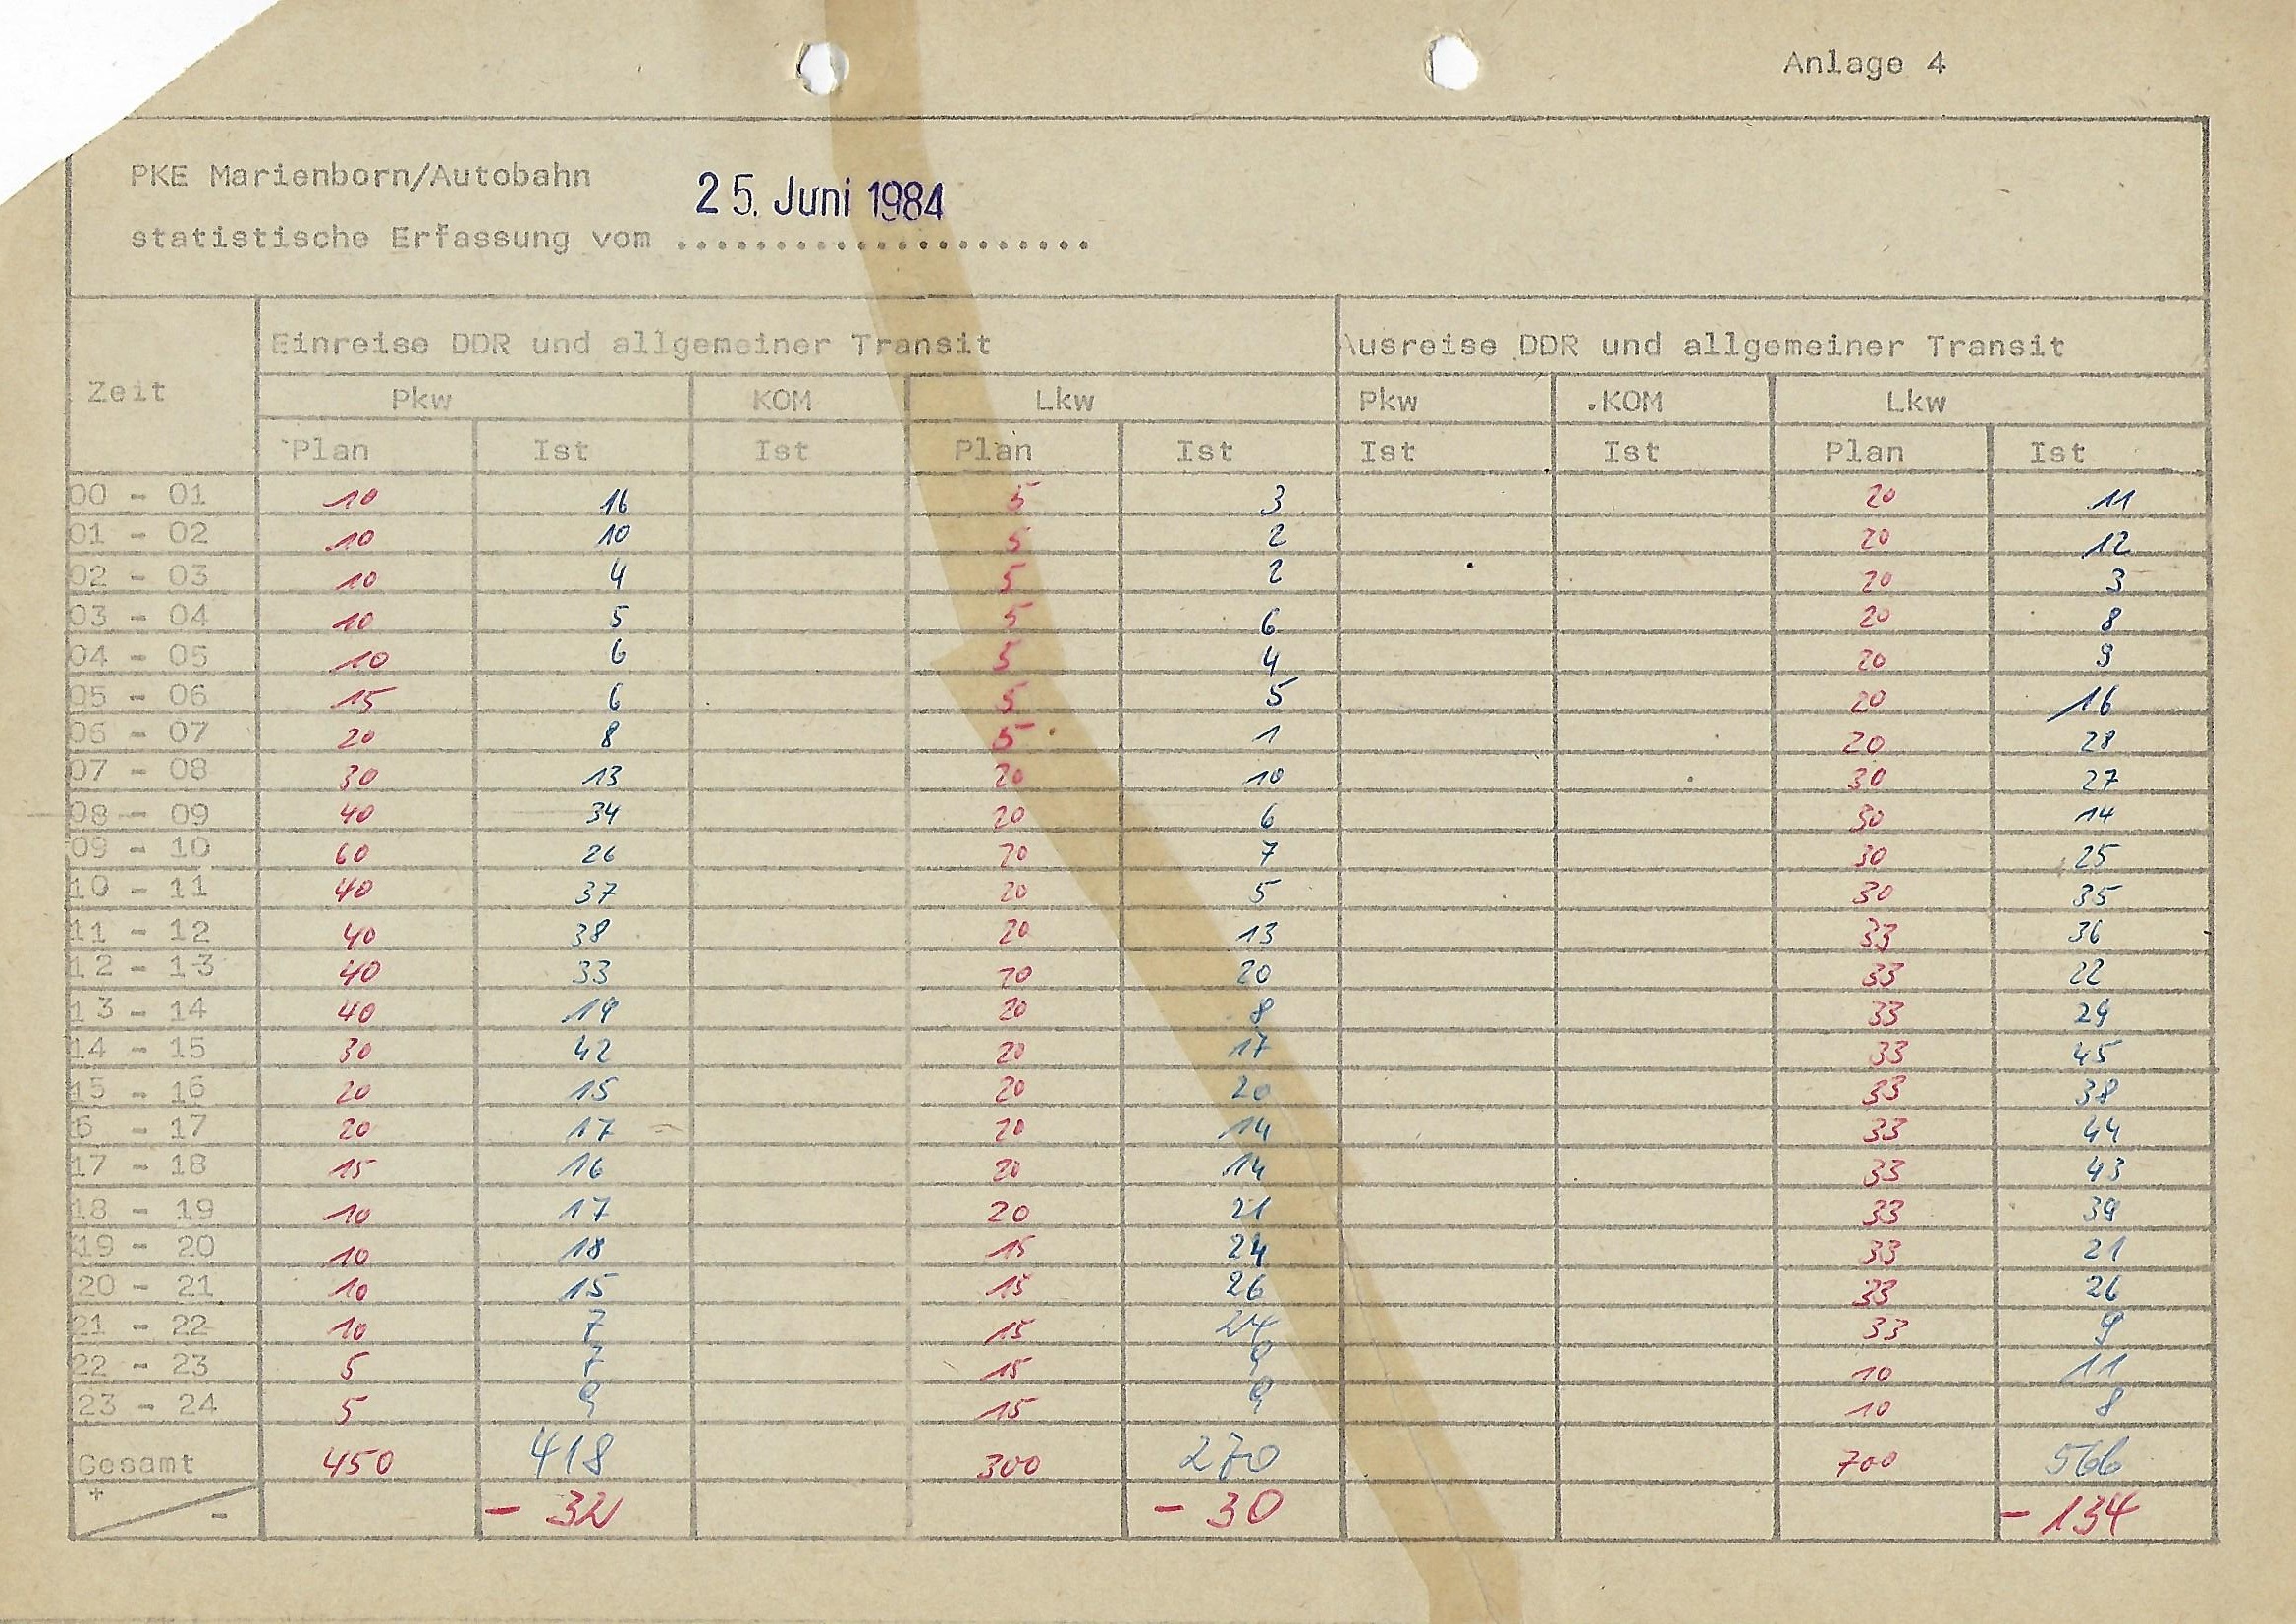 Anlage 4
PKE Marienborn/Autobahn
25. Juni 1984
statistische Erfassung vom .....................
Zeit Einreise DDR und allgemeiner Transit Ausreise DDR und allgemeiner Transit
Pkw KOM Lkw Pkw .KOM Lkw
Plan Ist Ist Plan Ist Ist Ist Plan Ist
00 - 01 10 16 5 3 20 11
01 - 02 10 10 5 2 20 12
02 - 03 10 4 5 2 20 3
03 - 04 10 5 5 6 20 8
04 - 05 10 6 5 4 20 9
05 - 06 15 6 5 5 20 16
06 - 07 20 8 5 1 20 28
07 - 08 30 13 20 10 30 27
08 - 09 40 34 20 6 30 14
09 - 10 60 26 20 7 30 25
10 - 11 40 37 20 5 30 35
11 - 12 40 38 20 13 33 36
12 - 13 40 33 20 20 33 22
13 - 14 40 19 20 8 33 29
14 - 15 30 42 20 17 33 45
15 - 16 20 15 20 20 33 38
6 - 17 20 17 20 14 33 44
17 - 18 15 16 20 14 33 43
18 - 19 10 17 20 21 33 39
19 - 20 10 18 15 24 33 21
20 - 21 10 15 15 26 33 26
21 - 22 10 7 15 24 33 9
22 - 23 5 7 15 9 10 11
23 - 24 5 9 15 9 10 8
Gesamt 450 418 300 270 700 566
+ - - 32 - 30 - 134